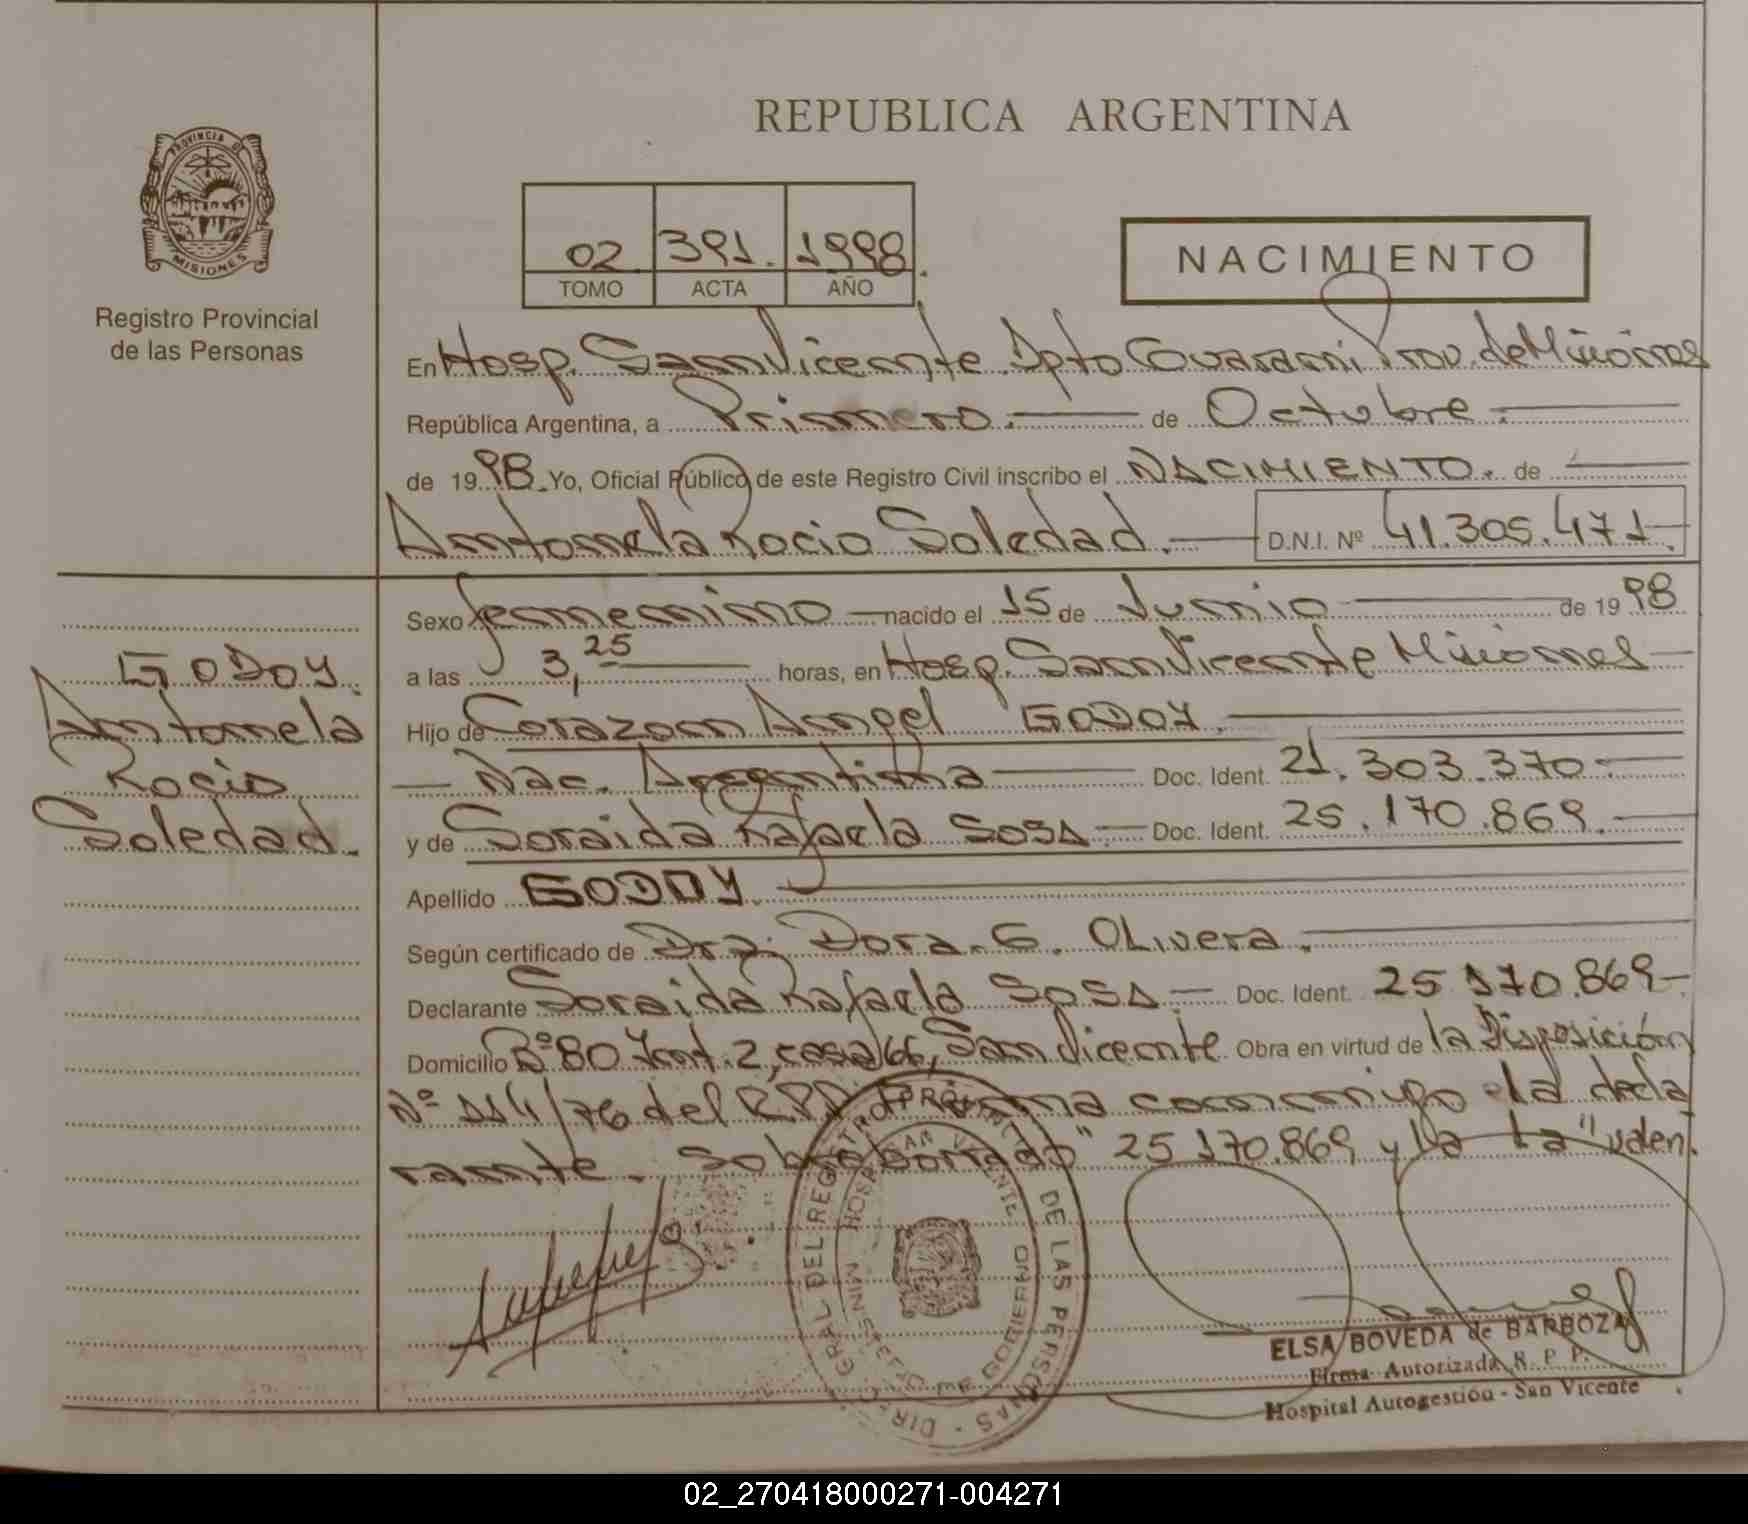 REPUBLICA ARGENTINA
PROVINCIA DE
MISIONES
Registro Provincial
de las Personas
02 391. 1998.
TOMO ACTA AÑO
NACIMIENTO
En Hosp. San Vicente Dpto Guarani Prov. de Misiones
República Argentina, a Primero. de Octubre.
de 1998. Yo, Oficial Público de este Registro Civil inscribo el NACIMIENTO. de
Antonela Rocio Soledad. D.N.I. Nº 41.305.471.
GODOY.
Antonela
Rocio
Soledad.
Sexo femenino nacido el 15 de Junio de 1998
a las 3,25 horas, en Hosp. San Vicente Misiones
Hijo de Corazon Angel GODOY.
Nac. Argentina Doc. Ident. 21.303.370.
y de Soraida Rafaela SOSA Doc. Ident. 25.170.869.
Apellido GODOY.
Según certificado de Dra. Dora. G. OLivera.
Declarante Soraida Rafaela SOSA Doc. Ident. 25 170.869
Domicilio Bº 80 2, casa 66, San Vicente Obra en virtud de la Disposición
Nº 114/76 del R.P.P. Firma conmigo la decla
rante. Sobre borrado" 25 170.869 y la La" valen.
DIREC. GRAL DEL REGISTRO PROVINCIAL DE LAS PERSONAS
HOSP. SAN VICENTE
MINIST. DE GOBIERNO
ELSA BOVEDA de BARBOZA
Firma Autorizada R. P. P.
Hospital Autogestión - San Vicente
02_270418000271-004271